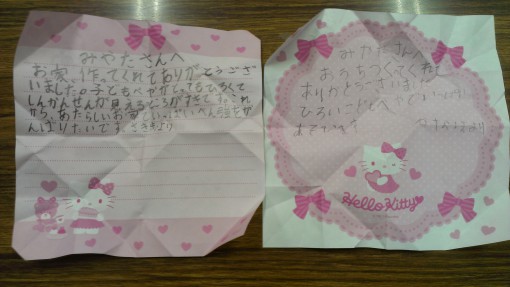 みやたさんへ
お家、作ってくれてありがとうござ
いました。子どもべやがとってもひろくて
しんかんせんが見えるところがすきです。これ
から、あたらしいお家でいっぱいべん強をが
んばりたいです。
みやたさん
おうちつくてくれて
ありがとうございました
ひろいこどもべや
Hello Kitty